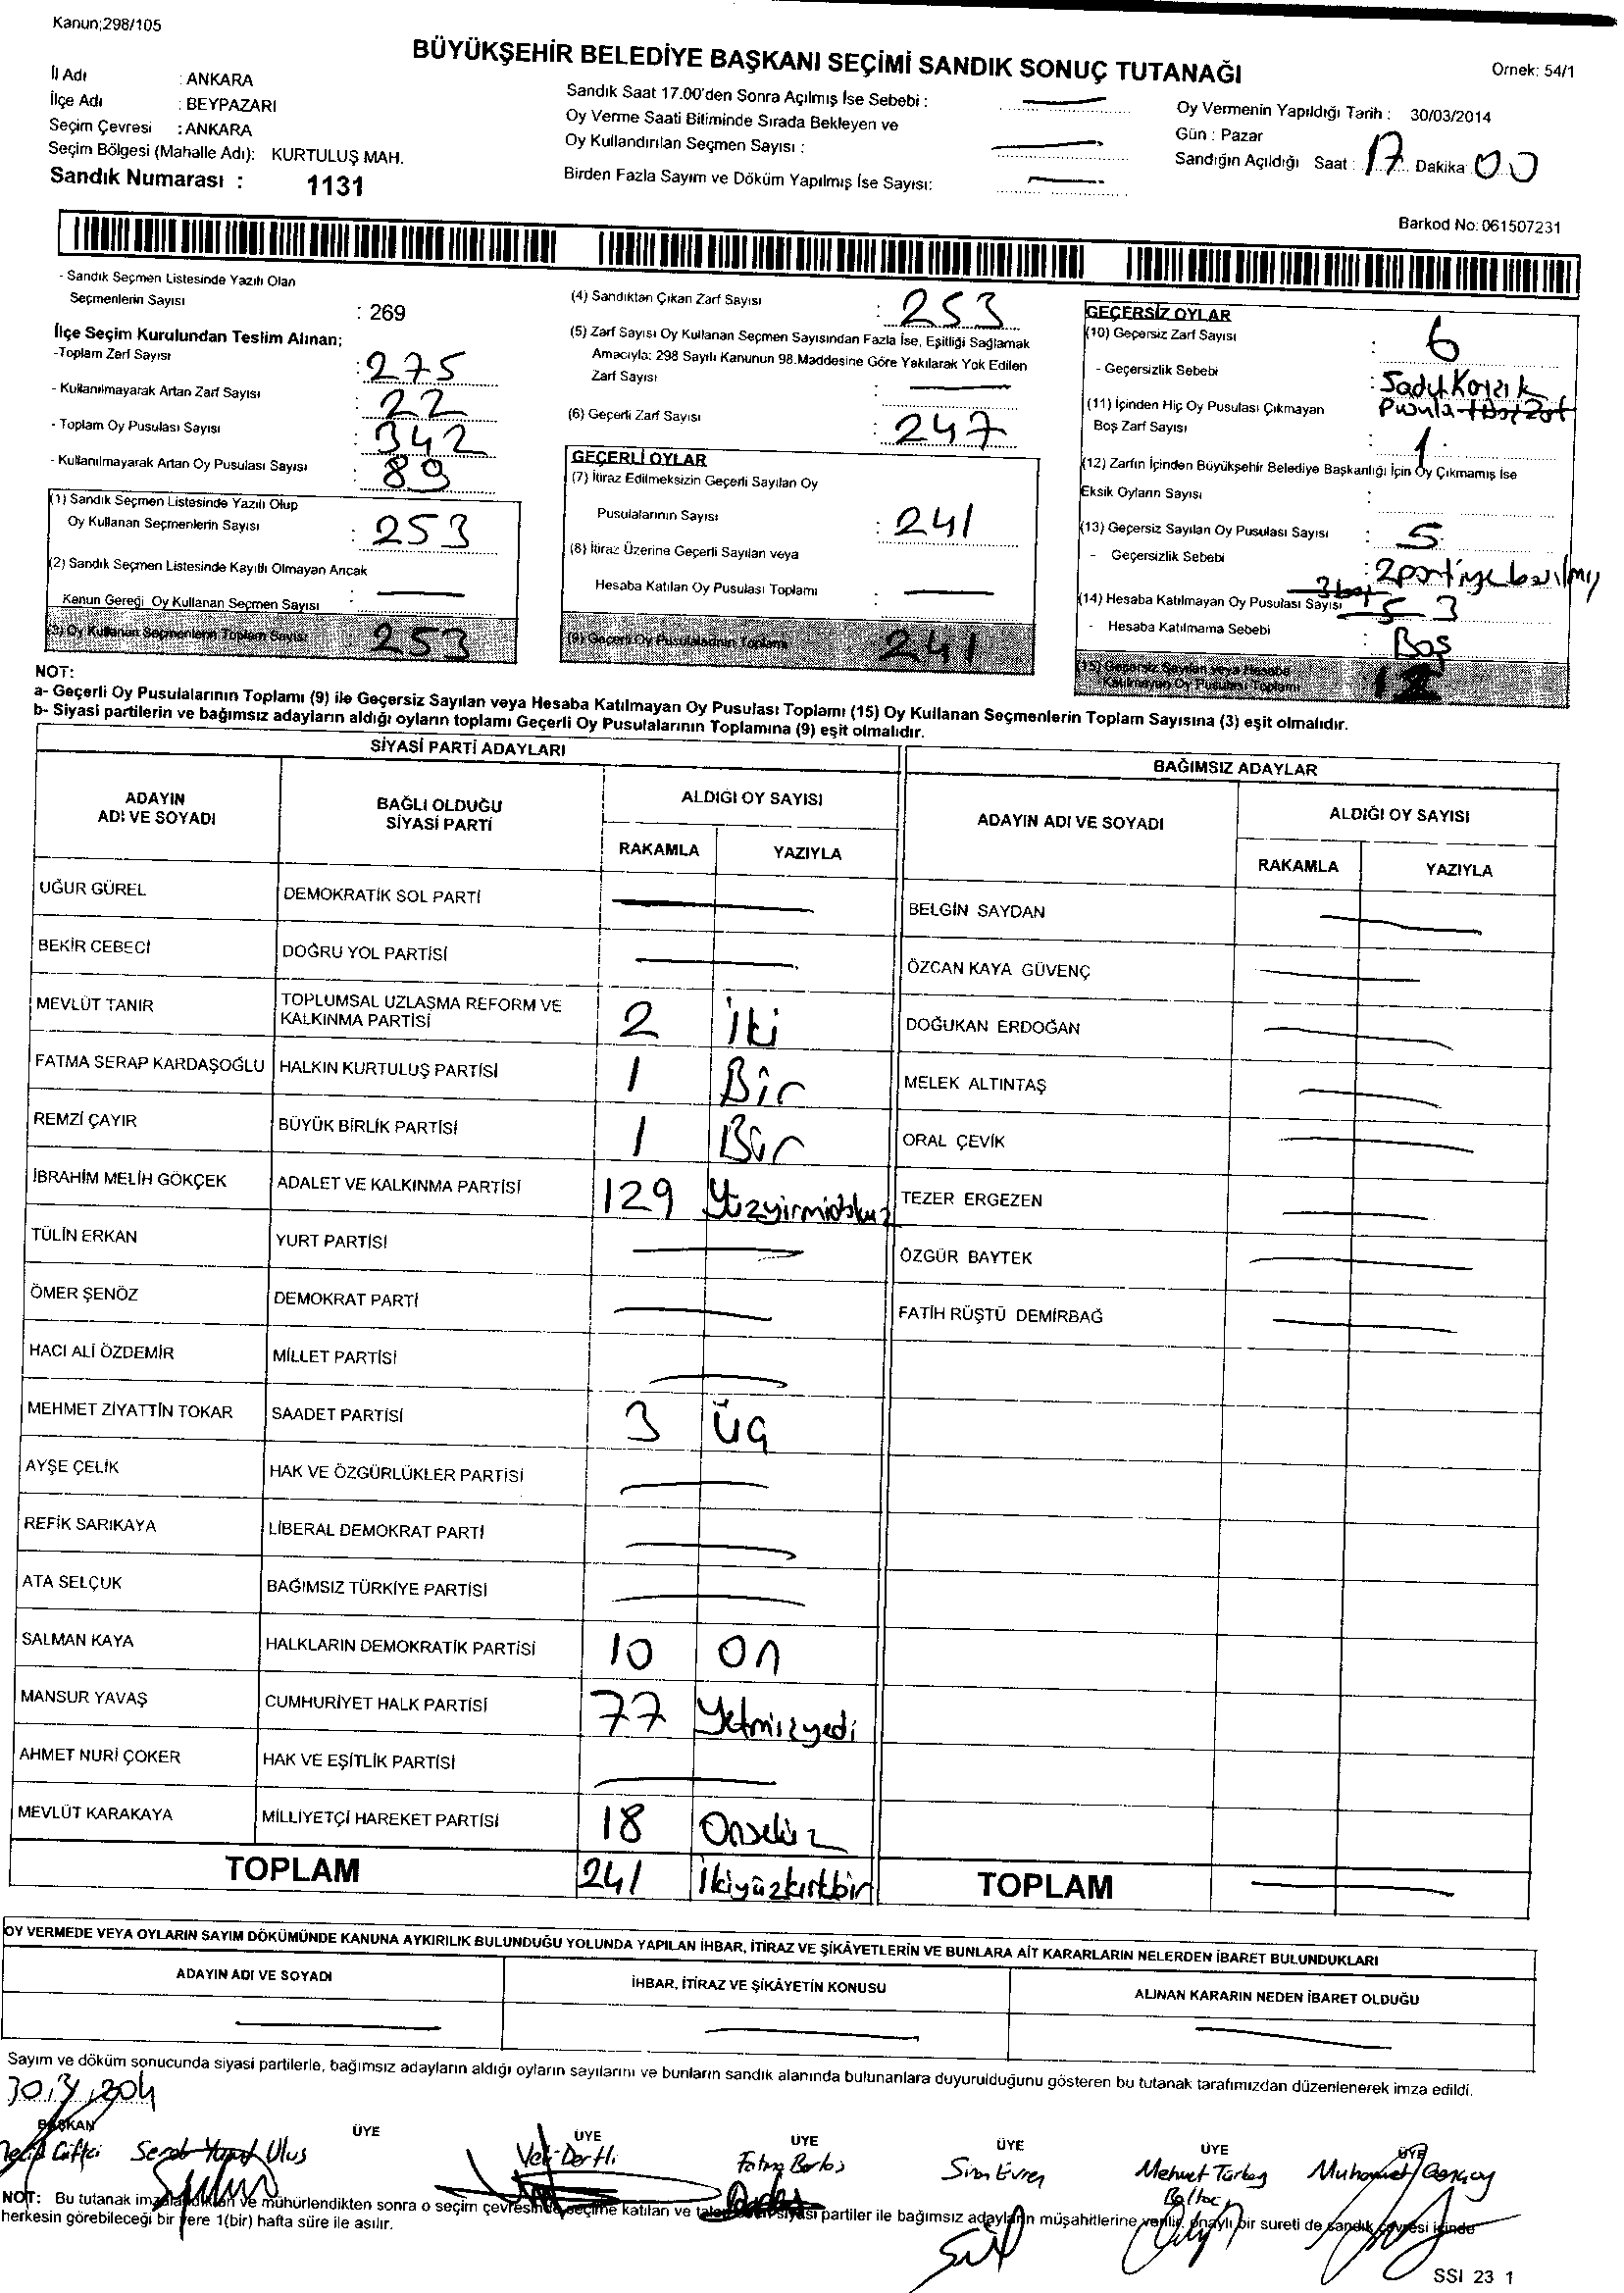 Kanun;298/105
BÜYÜKŞEHİR BELEDİYE BAŞKANI SEÇİMİ SANDIK SONUÇ TUTANAĞI
Ornek: 54/1
İl Adı : ANKARA
İlçe Adı : BEYPAZARI
Seçim Çevresi : ANKARA
Seçim Bölgesi (Mahalle Adı): KURTULUŞ MAH.
Sandık Numarası : 1131
Sandık Saat 17.00'den Sonra Açılmış İse Sebebi :
Oy Verme Saati Bitiminde Sırada Bekleyen ve
Oy Kullandırılan Seçmen Sayısı :
Birden Fazla Sayım ve Döküm Yapılmış İse Sayısı:
Oy Vermenin Yapıldığı Tarih : 30/03/2014
Gün : Pazar
Sandığın Açıldığı Saat : 17 Dakika 00
Barkod No: 061507231
- Sandık Seçmen Listesinde Yazılı Olan
Seçmenlerin Sayısı : 269
İlçe Seçim Kurulundan Teslim Alınan;
-Toplam Zarf Sayısı : 275
- Kullanılmayarak Artan Zarf Sayısı : 22
- Toplam Oy Pusulası Sayısı : 342
- Kullanılmayarak Artan Oy Pusulası Sayısı : 89
(1) Sandık Seçmen Listesinde Yazılı Olup
Oy Kullanan Seçmenlerin Sayısı : 253
(2) Sandık Seçmen Listesinde Kayıtlı Olmayan Ancak
Kanun Gereği Oy Kullanan Seçmen Sayısı :
(3) Oy Kullanan Seçmenlerin Toplam Sayısı 253
(4) Sandıktan Çıkan Zarf Sayısı : 253
(5) Zarf Sayısı Oy Kullanan Seçmen Sayısından Fazla İse, Eşitliği Sağlamak
Amacıyla: 298 Sayılı Kanunun 98.Maddesine Göre Yakılarak Yok Edilen
Zarf Sayısı :
(6) Geçerli Zarf Sayısı : 247
GEÇERLİ OYLAR
(7) İtiraz Edilmeksizin Geçerli Sayılan Oy
Pusulalarının Sayısı : 241
(8) İtiraz Üzerine Geçerli Sayılan veya
Hesaba Katılan Oy Pusulası Toplamı :
(9) Geçerli Oy Pusulalarının Toplamı 241
GEÇERSİZ OYLAR
(10) Geçersiz Zarf Sayısı : 6
- Geçersizlik Sebebi :
Pusula
(11) İçinden Hiç Oy Pusulası Çıkmayan
Boş Zarf Sayısı : 1
(12) Zarfın İçinden Büyükşehir Belediye Başkanlığı İçin Oy Çıkmamış İse
Eksik Oyların Sayısı :
(13) Geçersiz Sayılan Oy Pusulası Sayısı : 5
- Geçersizlik Sebebi : 2 partiye basılmış
3 boş
(14) Hesaba Katılmayan Oy Pusulası Sayısı 5 3
- Hesaba Katılmama Sebebi : Boş
(15) Geçersiz Sayılan veya Hesaba
Katılmayan Oy Pusulası Toplamı 12
NOT:
a- Geçerli Oy Pusulalarının Toplamı (9) ile Geçersiz Sayılan veya Hesaba Katılmayan Oy Pusulası Toplamı (15) Oy Kullanan Seçmenlerin Toplam Sayısına (3) eşit olmalıdır.
b- Siyasi partilerin ve bağımsız adayların aldığı oyların toplamı Geçerli Oy Pusulalarının Toplamına (9) eşit olmalıdır.
SİYASİ PARTİ ADAYLARI
ADAYIN ADI VE SOYADI BAĞLI OLDUĞU SİYASİ PARTİ ALDIĞI OY SAYISI
RAKAMLA YAZIYLA
UĞUR GÜREL DEMOKRATİK SOL PARTİ
BEKİR CEBECİ DOĞRU YOL PARTİSİ
MEVLÜT TANIR TOPLUMSAL UZLAŞMA REFORM VE KALKINMA PARTİSİ 2 İki
FATMA SERAP KARDAŞOĞLU HALKIN KURTULUŞ PARTİSİ 1 Bir
REMZİ ÇAYIR BÜYÜK BİRLİK PARTİSİ 1 Bir
İBRAHİM MELİH GÖKÇEK ADALET VE KALKINMA PARTİSİ 129 Yüzyirmidokuz
TÜLİN ERKAN YURT PARTİSİ
ÖMER ŞENÖZ DEMOKRAT PARTİ
HACI ALİ ÖZDEMİR MİLLET PARTİSİ
MEHMET ZİYATTİN TOKAR SAADET PARTİSİ 3 Üç
AYŞE ÇELİK HAK VE ÖZGÜRLÜKLER PARTİSİ
REFİK SARIKAYA LİBERAL DEMOKRAT PARTİ
ATA SELÇUK BAĞIMSIZ TÜRKİYE PARTİSİ
SALMAN KAYA HALKLARIN DEMOKRATİK PARTİSİ 10 On
MANSUR YAVAŞ CUMHURİYET HALK PARTİSİ 77 Yetmişyedi
AHMET NURİ ÇOKER HAK VE EŞİTLİK PARTİSİ
MEVLÜT KARAKAYA MİLLİYETÇİ HAREKET PARTİSİ 18 Onsekiz
TOPLAM 241 İkiyüzkırkbir
BAĞIMSIZ ADAYLAR
ADAYIN ADI VE SOYADI ALDIĞI OY SAYISI
RAKAMLA YAZIYLA
BELGİN SAYDAN
ÖZCAN KAYA GÜVENÇ
DOĞUKAN ERDOĞAN
MELEK ALTINTAŞ
ORAL ÇEVİK
TEZER ERGEZEN
ÖZGÜR BAYTEK
FATİH RÜŞTÜ DEMİRBAĞ
TOPLAM
OY VERMEDE VEYA OYLARIN SAYIM DÖKÜMÜNDE KANUNA AYKIRILIK BULUNDUĞU YOLUNDA YAPILAN İHBAR, İTİRAZ VE ŞİKÂYETLERİN VE BUNLARA AİT KARARLARIN NELERDEN İBARET BULUNDUKLARI
ADAYIN ADI VE SOYADI İHBAR, İTİRAZ VE ŞİKÂYETİN KONUSU ALINAN KARARIN NEDEN İBARET OLDUĞU
Sayım ve döküm sonucunda siyasi partilerle, bağımsız adayların aldığı oyların sayılarını ve bunların sandık alanında bulunanlara duyurulduğunu gösteren bu tutanak tarafımızdan düzenlenerek imza edildi.
BAŞKAN ÜYE ÜYE ÜYE ÜYE ÜYE ÜYE
Ulus Veli Dertli Fatma Sinan Evren Mehmet Türkeş Muhammet
NOT: Bu tutanak imzalandıktan ve mühürlendikten sonra o seçim çevresinde seçime katılan ve talep eden siyasi partiler ile bağımsız adayların müşahitlerine verilir, onaylı bir sureti de sandık çevresi içinde
herkesin görebileceği bir yere 1(bir) hafta süre ile asılır.
SSI 23 1